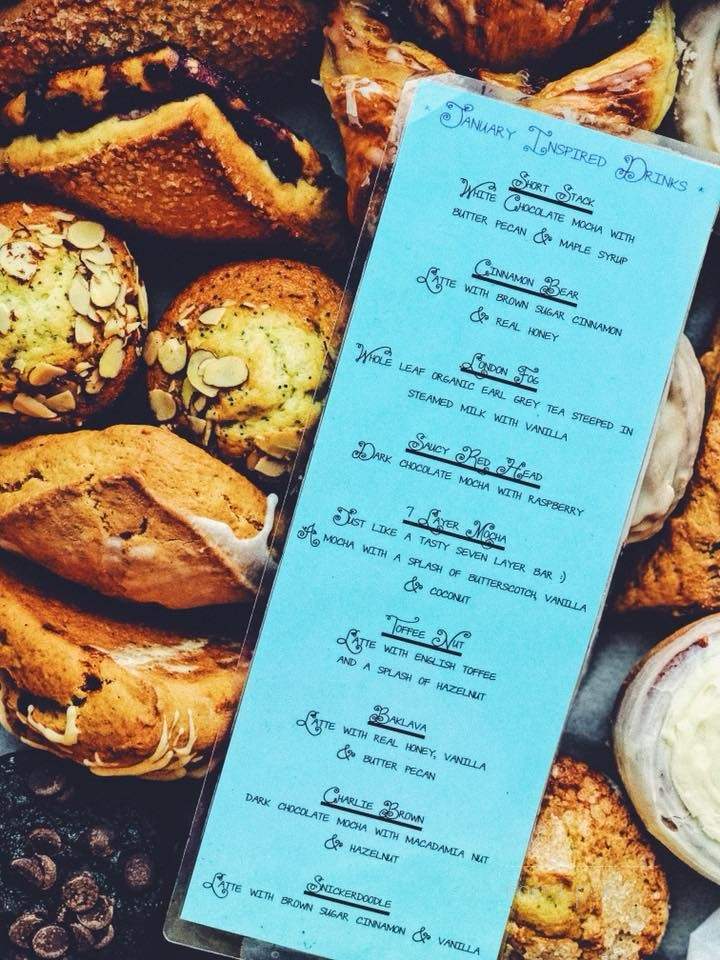 January Inspired Drinks
Short Stack
White Chocolate mocha with
butter pecan & maple syrup
Cinnamon Bear
Latte with brown sugar cinnamon
& real honey
London Fog
Whole leaf organic earl grey tea steeped in
steamed milk with vanilla
Saucy Red Head
Dark chocolate mocha with raspberry
7 Layer Mocha
Just like a tasty seven layer bar :)
A mocha with a splash of butterscotch, vanilla
& coconut
Toffee Nut
Latte with english toffee
and a splash of hazelnut
Baklava
Latte with real honey, vanilla
& butter pecan
Charlie Brown
dark chocolate mocha with macadamia nut
& hazelnut
Snickerdoodle
Latte with brown sugar cinnamon & vanilla